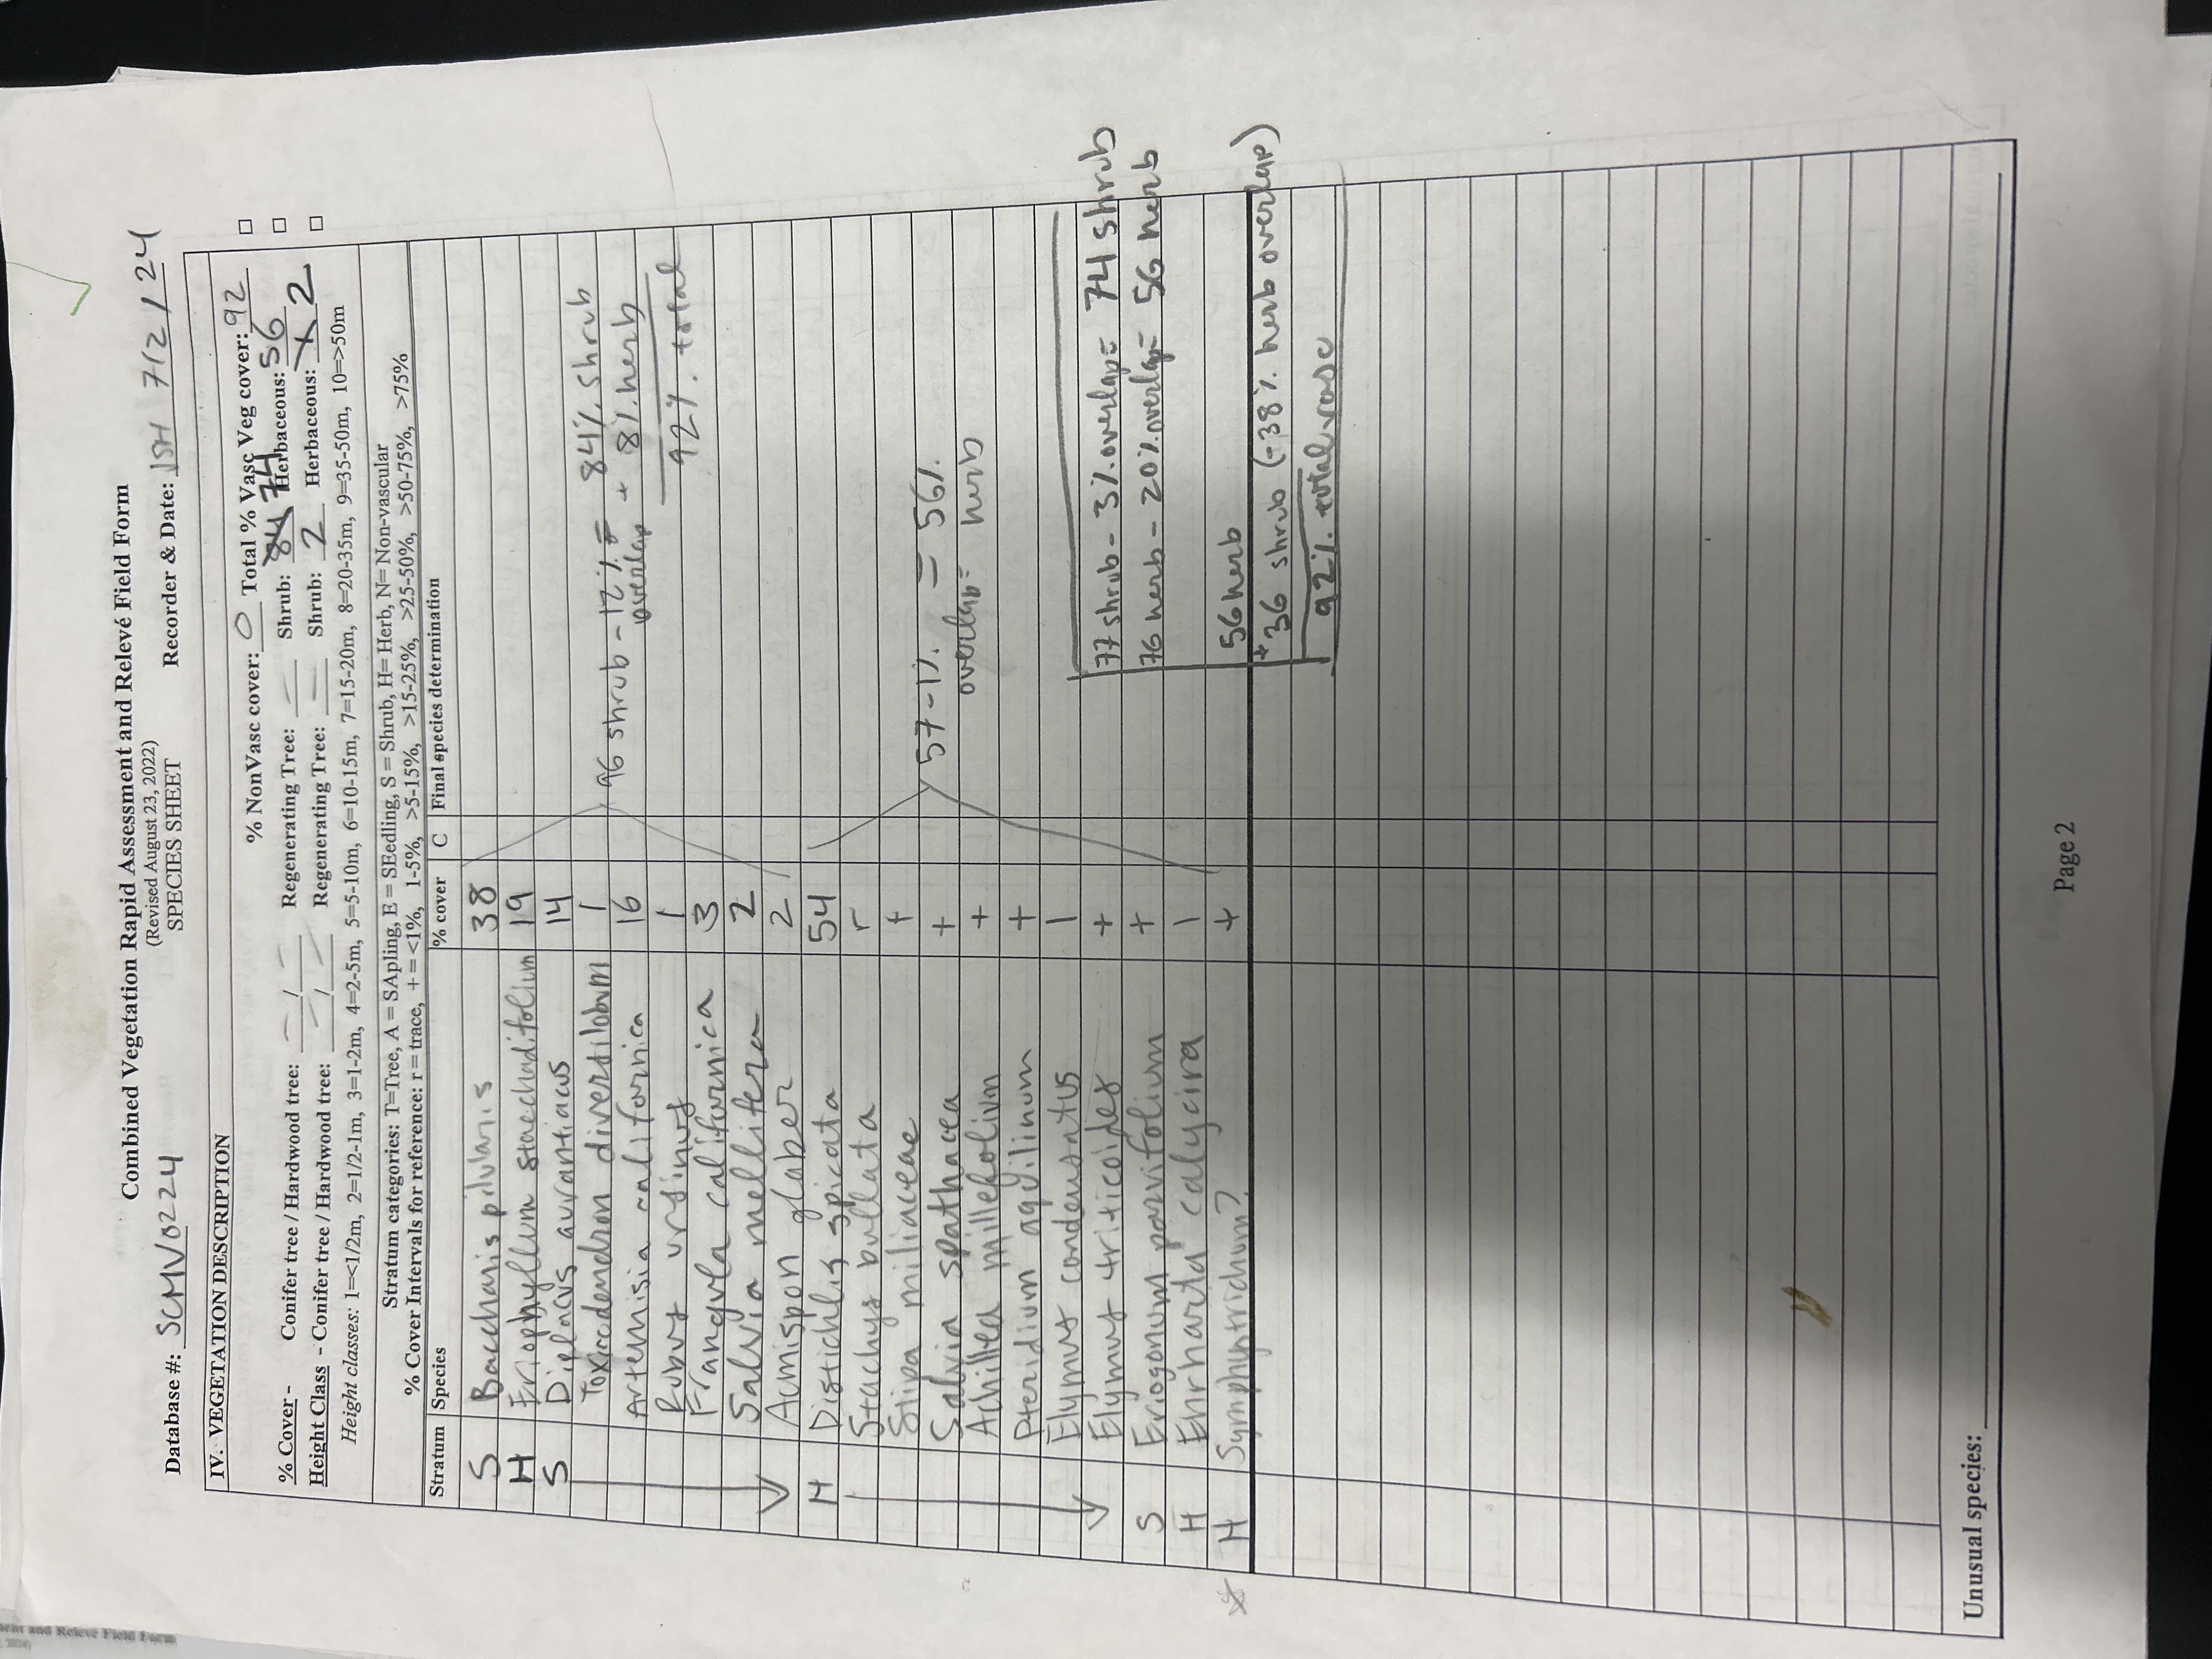 Combined Vegetation Rapid Assessment and Relevé Field Form
(Revised August 23, 2022)
SPECIES SHEET
Database #: SCMV0224 Recorder & Date: JSH 7/2/24
IV. VEGETATION DESCRIPTION
% NonVasc cover: 0 Total % Vasc Veg cover: 92
% Cover - Conifer tree / Hardwood tree: — / — Regenerating Tree: — Shrub: 84 74 Herbaceous: 56
Height Class - Conifer tree / Hardwood tree: — / — Regenerating Tree: — Shrub: 2 Herbaceous: 1 2
Height classes: 1=<1/2m, 2=1/2-1m, 3=1-2m, 4=2-5m, 5=5-10m, 6=10-15m, 7=15-20m, 8=20-35m, 9=35-50m, 10=>50m
Stratum categories: T=Tree, A = SApling, E = SEedling, S = Shrub, H= Herb, N= Non-vascular
% Cover Intervals for reference: r = trace, + = <1%, 1-5%, >5-15%, >15-25%, >25-50%, >50-75%, >75%
Stratum Species % cover C Final species determination
S Baccharis pilularis 38
H Eriophyllum staechadifolium 19
S Diplacus aurantiacus 14
Toxicodendron diversilobum 1
Artemisia californica 16
Rubus ursinus 1
Frangula californica 3
Salvia mellifera 2
Acmispon glaber 2
H Distichlis spicata 54
Stachys bullata r
Stipa miliaceae +
Salvia spathacea +
Achillea millefolium +
Pteridium aquilinum +
Elymus condensatus 1
Elymus triticoides +
S Eriogonum parvifolium +
H Ehrharta calycina 1
H Symphyotrichum? +
96 shrub - 12% = 84% shrub
overlap + 8% herb
92% total
57 - 1% = 56%
overlap = herb
77 shrub - 3% overlap = 74 shrub
76 herb - 20% overlap = 56 herb
56 herb
+ 36 shrub (-38% herb overlap)
92% total vasc
Unusual species:
Page 2